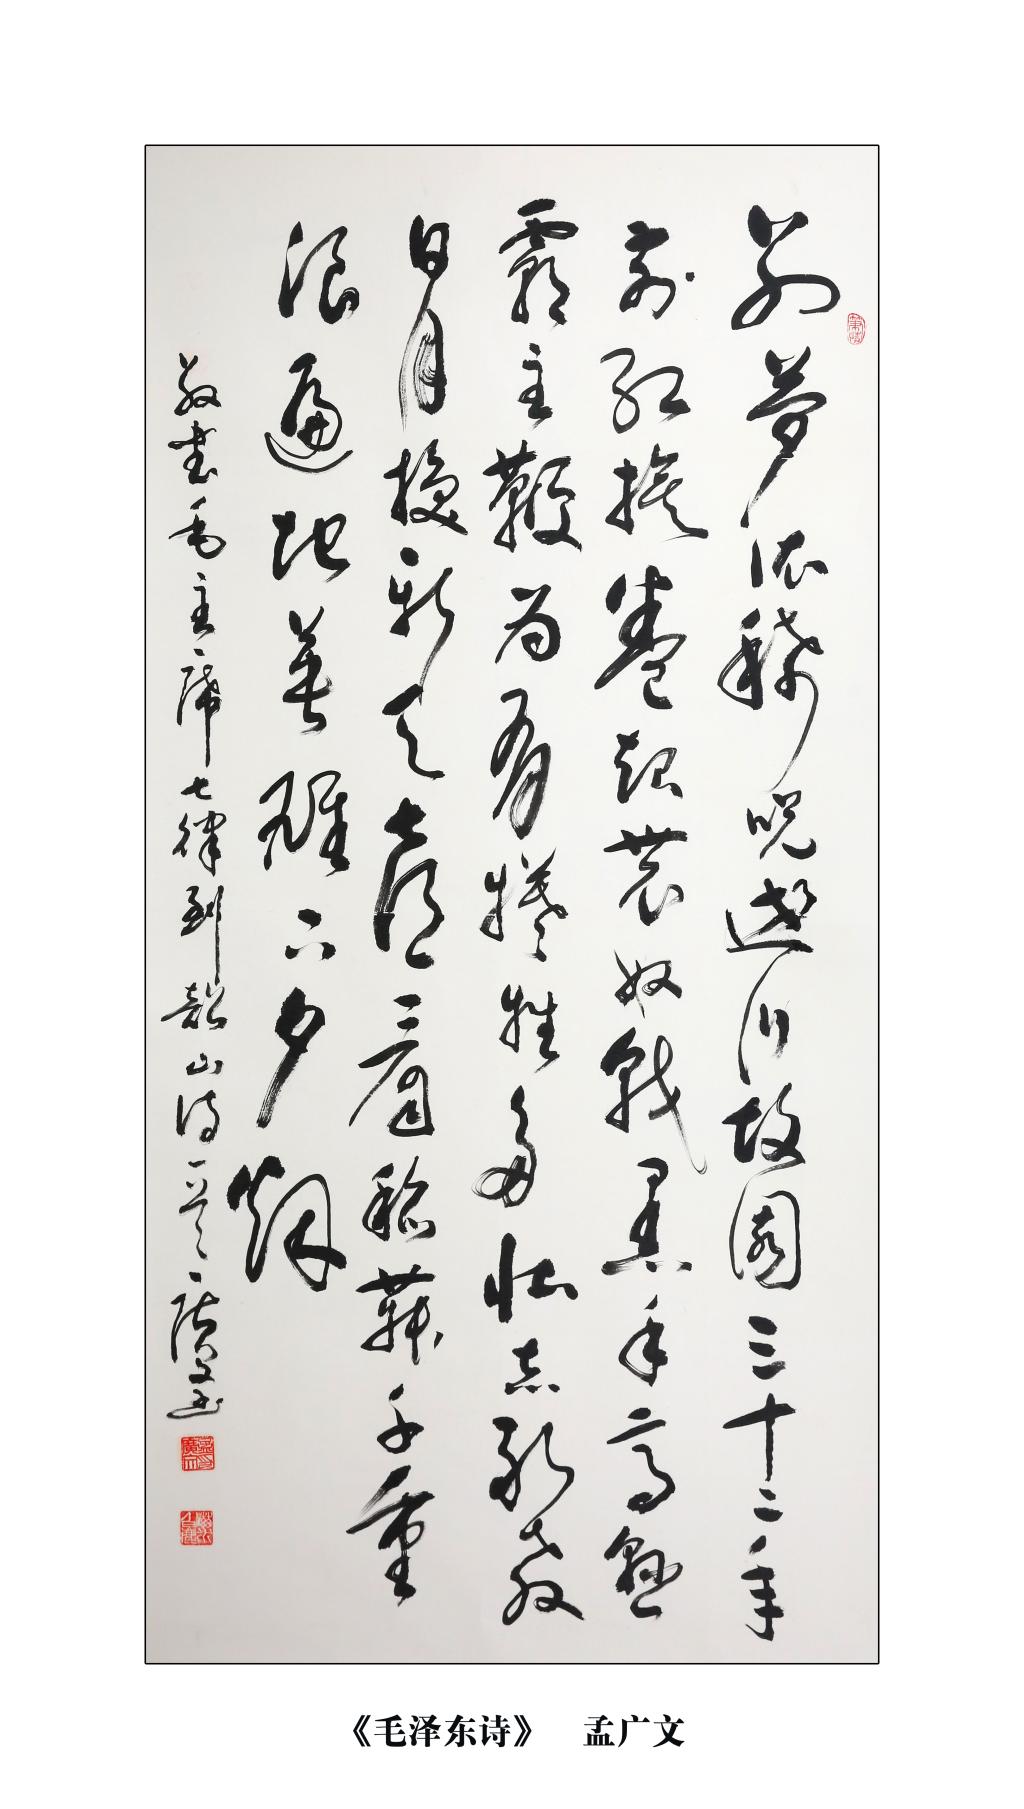 别梦依稀咒逝川故园三十二年
前红旗卷起农奴戟黑手高悬
霸主鞭为有牺牲多壮志敢教
日月换新天喜看稻菽千重
浪遍地英雄下夕烟
敬书毛主席七律到韶山诗一首广文书
《毛泽东诗》 孟广文